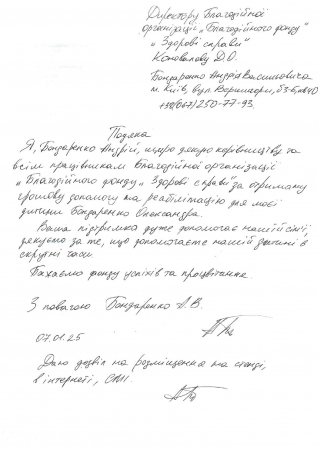 Директору Благодійної
організації „Благодійного фонду"
„Здорові справи"
Коновалову Д.О.
Бондаренко Андрія Васильовича
м. Київ, вул. Воршигори,
+38(067)250-77-93
Подяка
Я, Бондаренко Андрій, щиро дякую керівництву та
всім працівникам Благодійної організації
„Благодійного фонду „Здорові справи" за отриману
грошову допомогу на реабілітацію для моєї
дитини Бондаренко Олександра.
Ваша підтримка дуже допомогає нашій сім'ї,
дякуємо за те, що допомогаєте нашій дитині в
скрутні часи.
Бажаємо фонду успіхів та процвітання.
З повагою Бондаренко А.В.
07.01.25
Даю дозвіл на розміщення на стенді,
в інтернеті, СМИ.